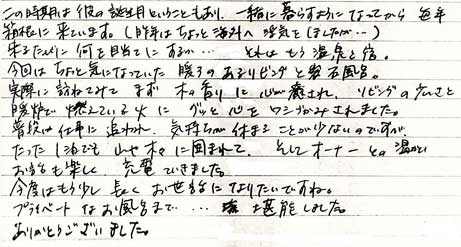 この時期は彼の誕生月ということもあり、一緒に暮らすようになってから毎年
箱根に来ています。(昨年はちょっと海外へ浮気をしましたが…)
来るたんびに何を目当てにするか… それはもう温泉と宿。
今回はちょっと気になっていた暖ろのあるリビングと岩石風呂。
実際に訪ねてみてまず木の香りに心が癒され、リビングの広さと
暖炉で燃えている火にグッと心をワシづかみされました。
普段は仕事に追われ、気持ちが休まることが少ないのですが、
たった1泊でも山や木々に囲まれて、そしてオーナーとの温かい
お話も楽しく充電できました。
今度はもう少し長くお世話になりたいですね。
プライベートなお風呂まで… 堪能しました。
ありがとうございました。